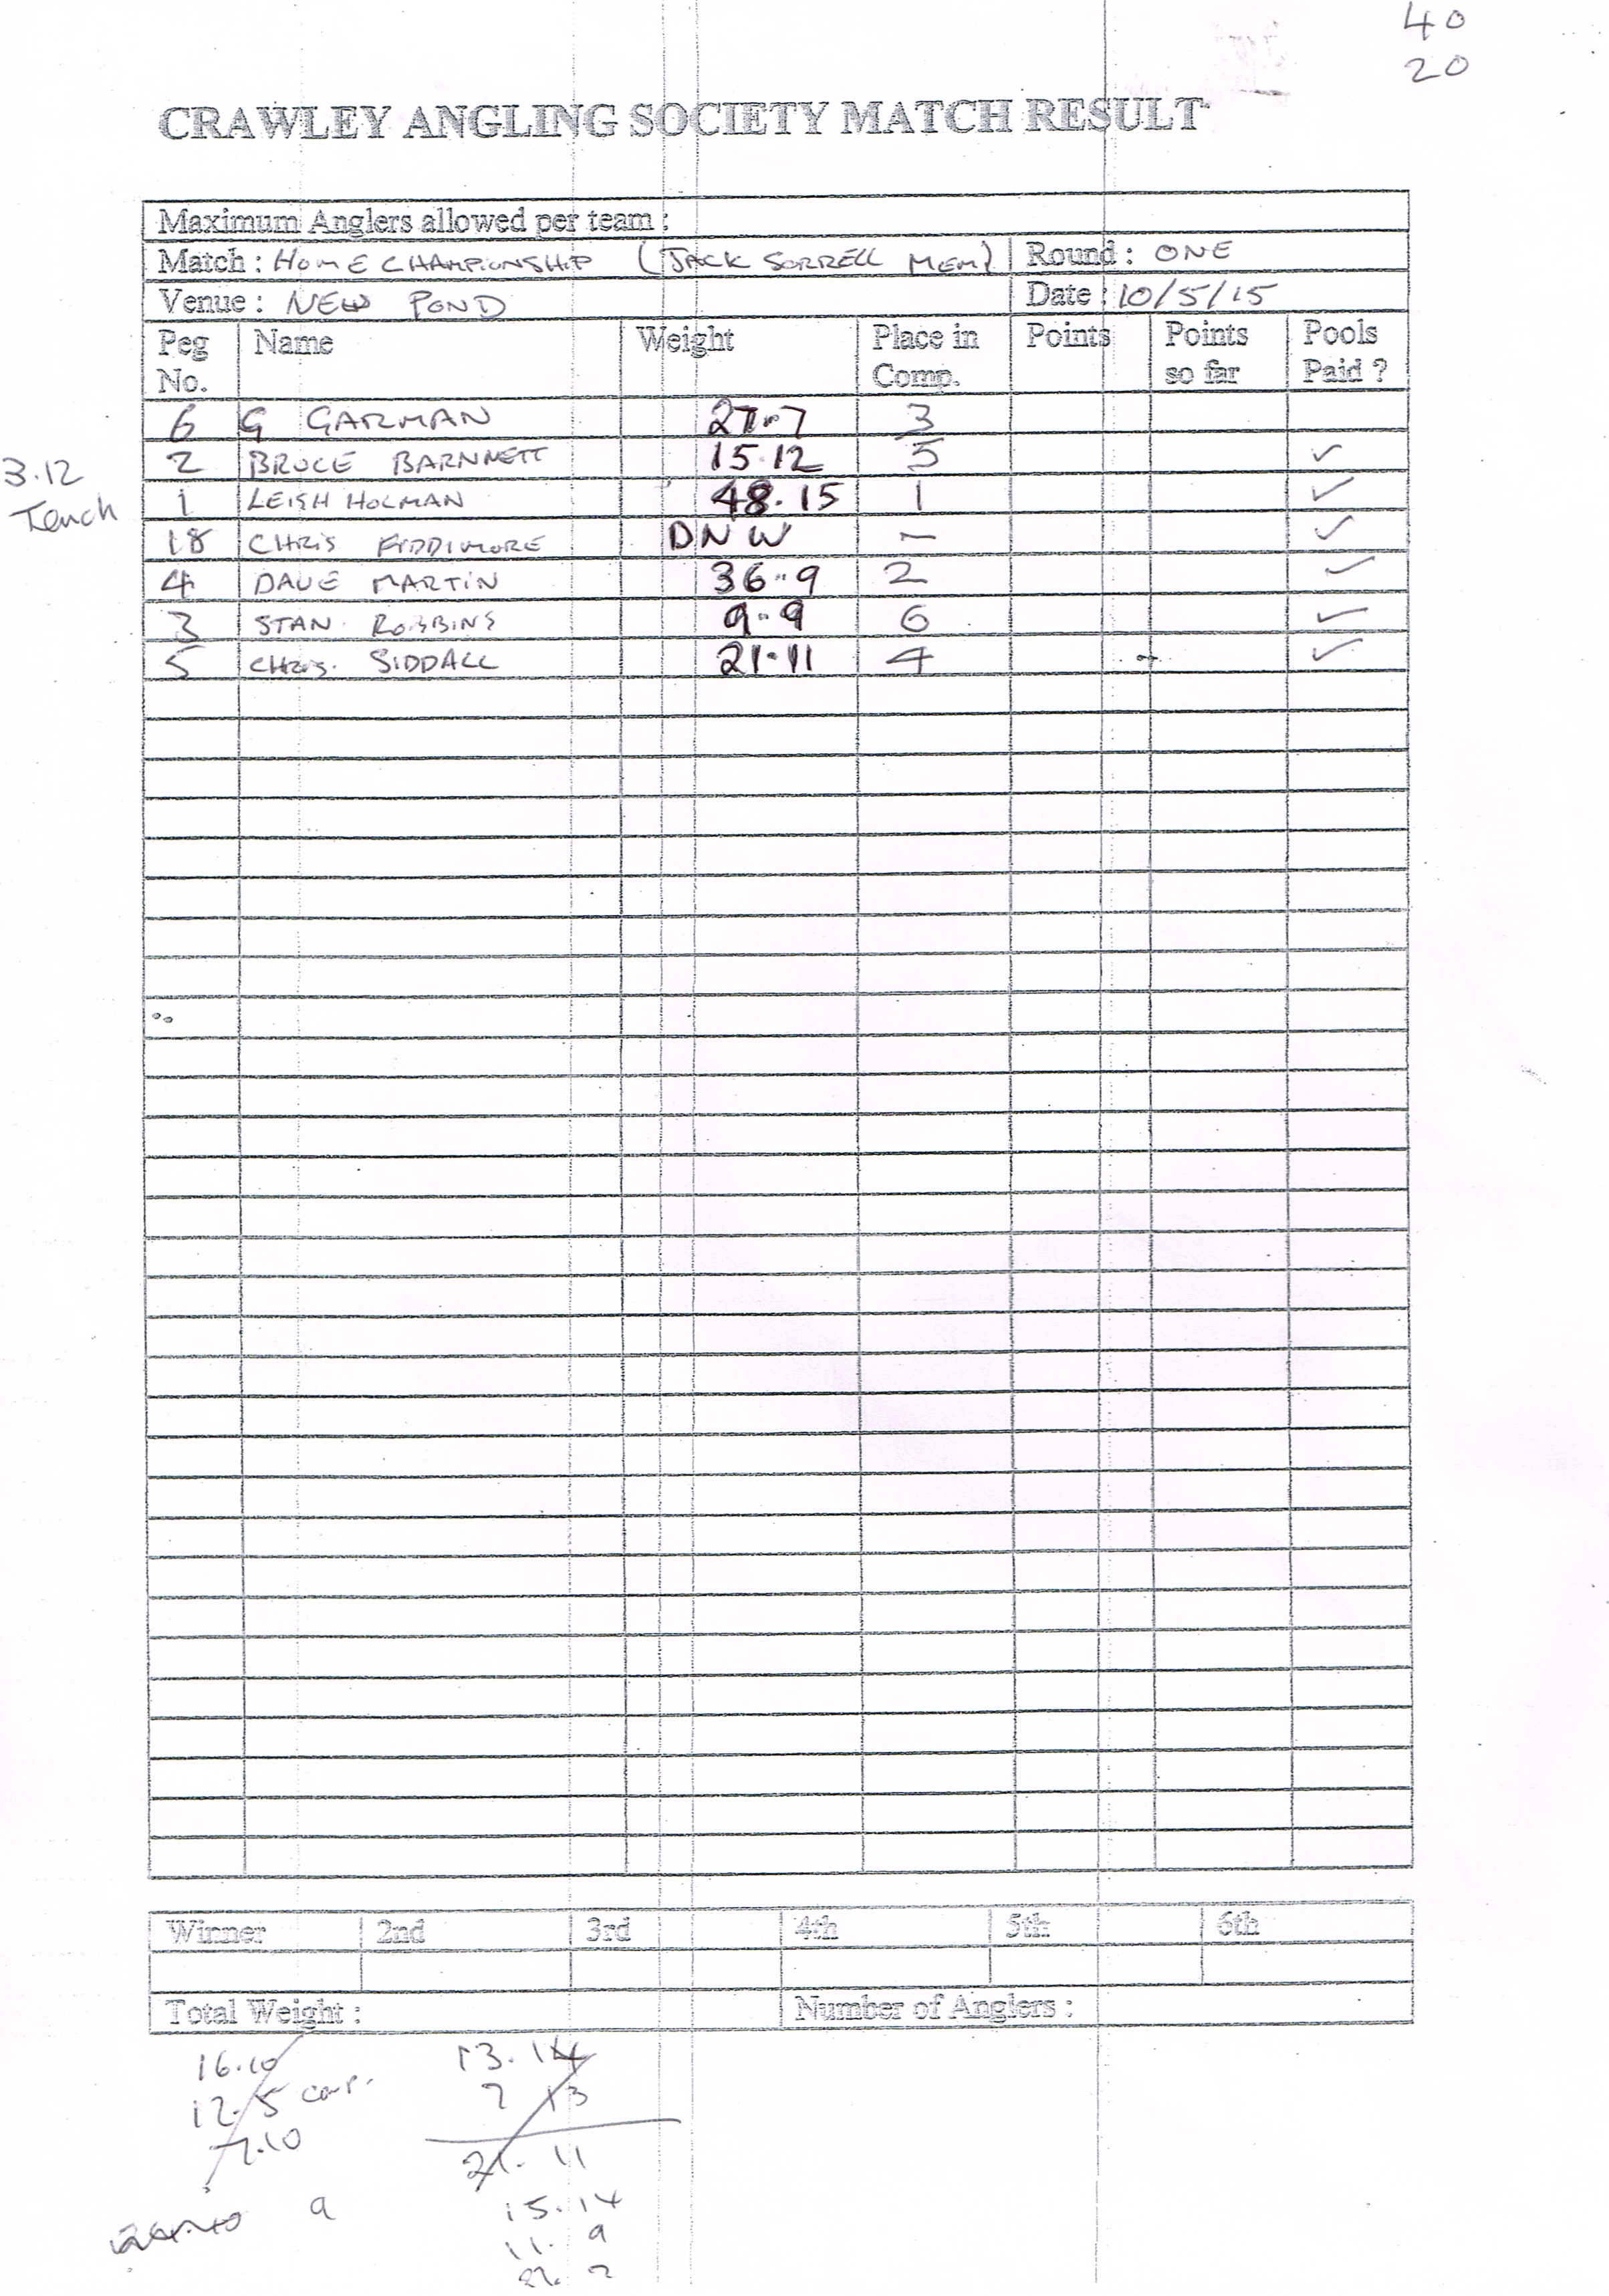 40
20
CRAWLEY ANGLING SOCIETY MATCH RESULT
Maximum Anglers allowed per team :
Match : HOME CHAMPIONSHIP (JACK SORRELL MEM) Round : ONE
Venue : NEW POND Date : 10/5/15
Peg No. Name Weight Place in Comp. Points Points so far Pools Paid ?
6 G GARMAN 27-7 3
2 BRUCE BARNNETT 15.12 5 ✓
3.12 Tench
1 LEIGH HOLMAN 48.15 1 ✓
18 CHRIS FIDDIMORE DNW – ✓
4 DAVE MARTIN 36-9 2 ✓
3 STAN ROBBINS 9-9 6 ✓
5 CHRIS SIDDALL 21-11 4 ✓
Winner 2nd 3rd 4th 5th 6th
Total Weight : Number of Anglers :
16.10
12.5
7.10
9
13.14
7 13
21. 11
15.14
11. 9